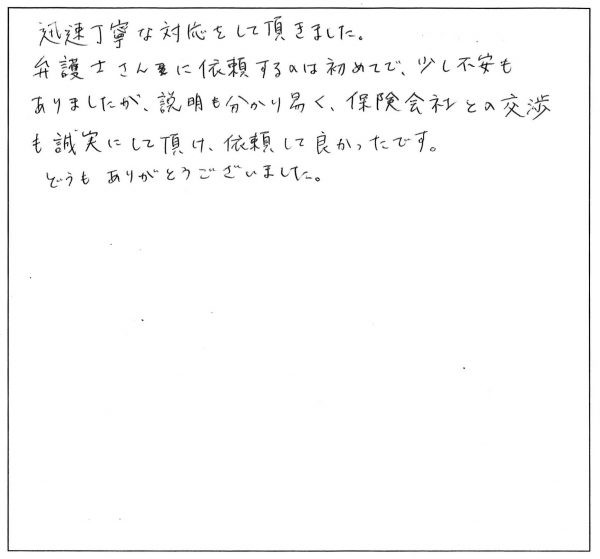 迅速丁寧な対応をして頂きました。
弁護士さんに依頼するのは初めてで、少し不安も
ありましたが、説明も分かり易く、保険会社との交渉
も誠実にして頂け、依頼して良かったです。
どうもありがとうございました。